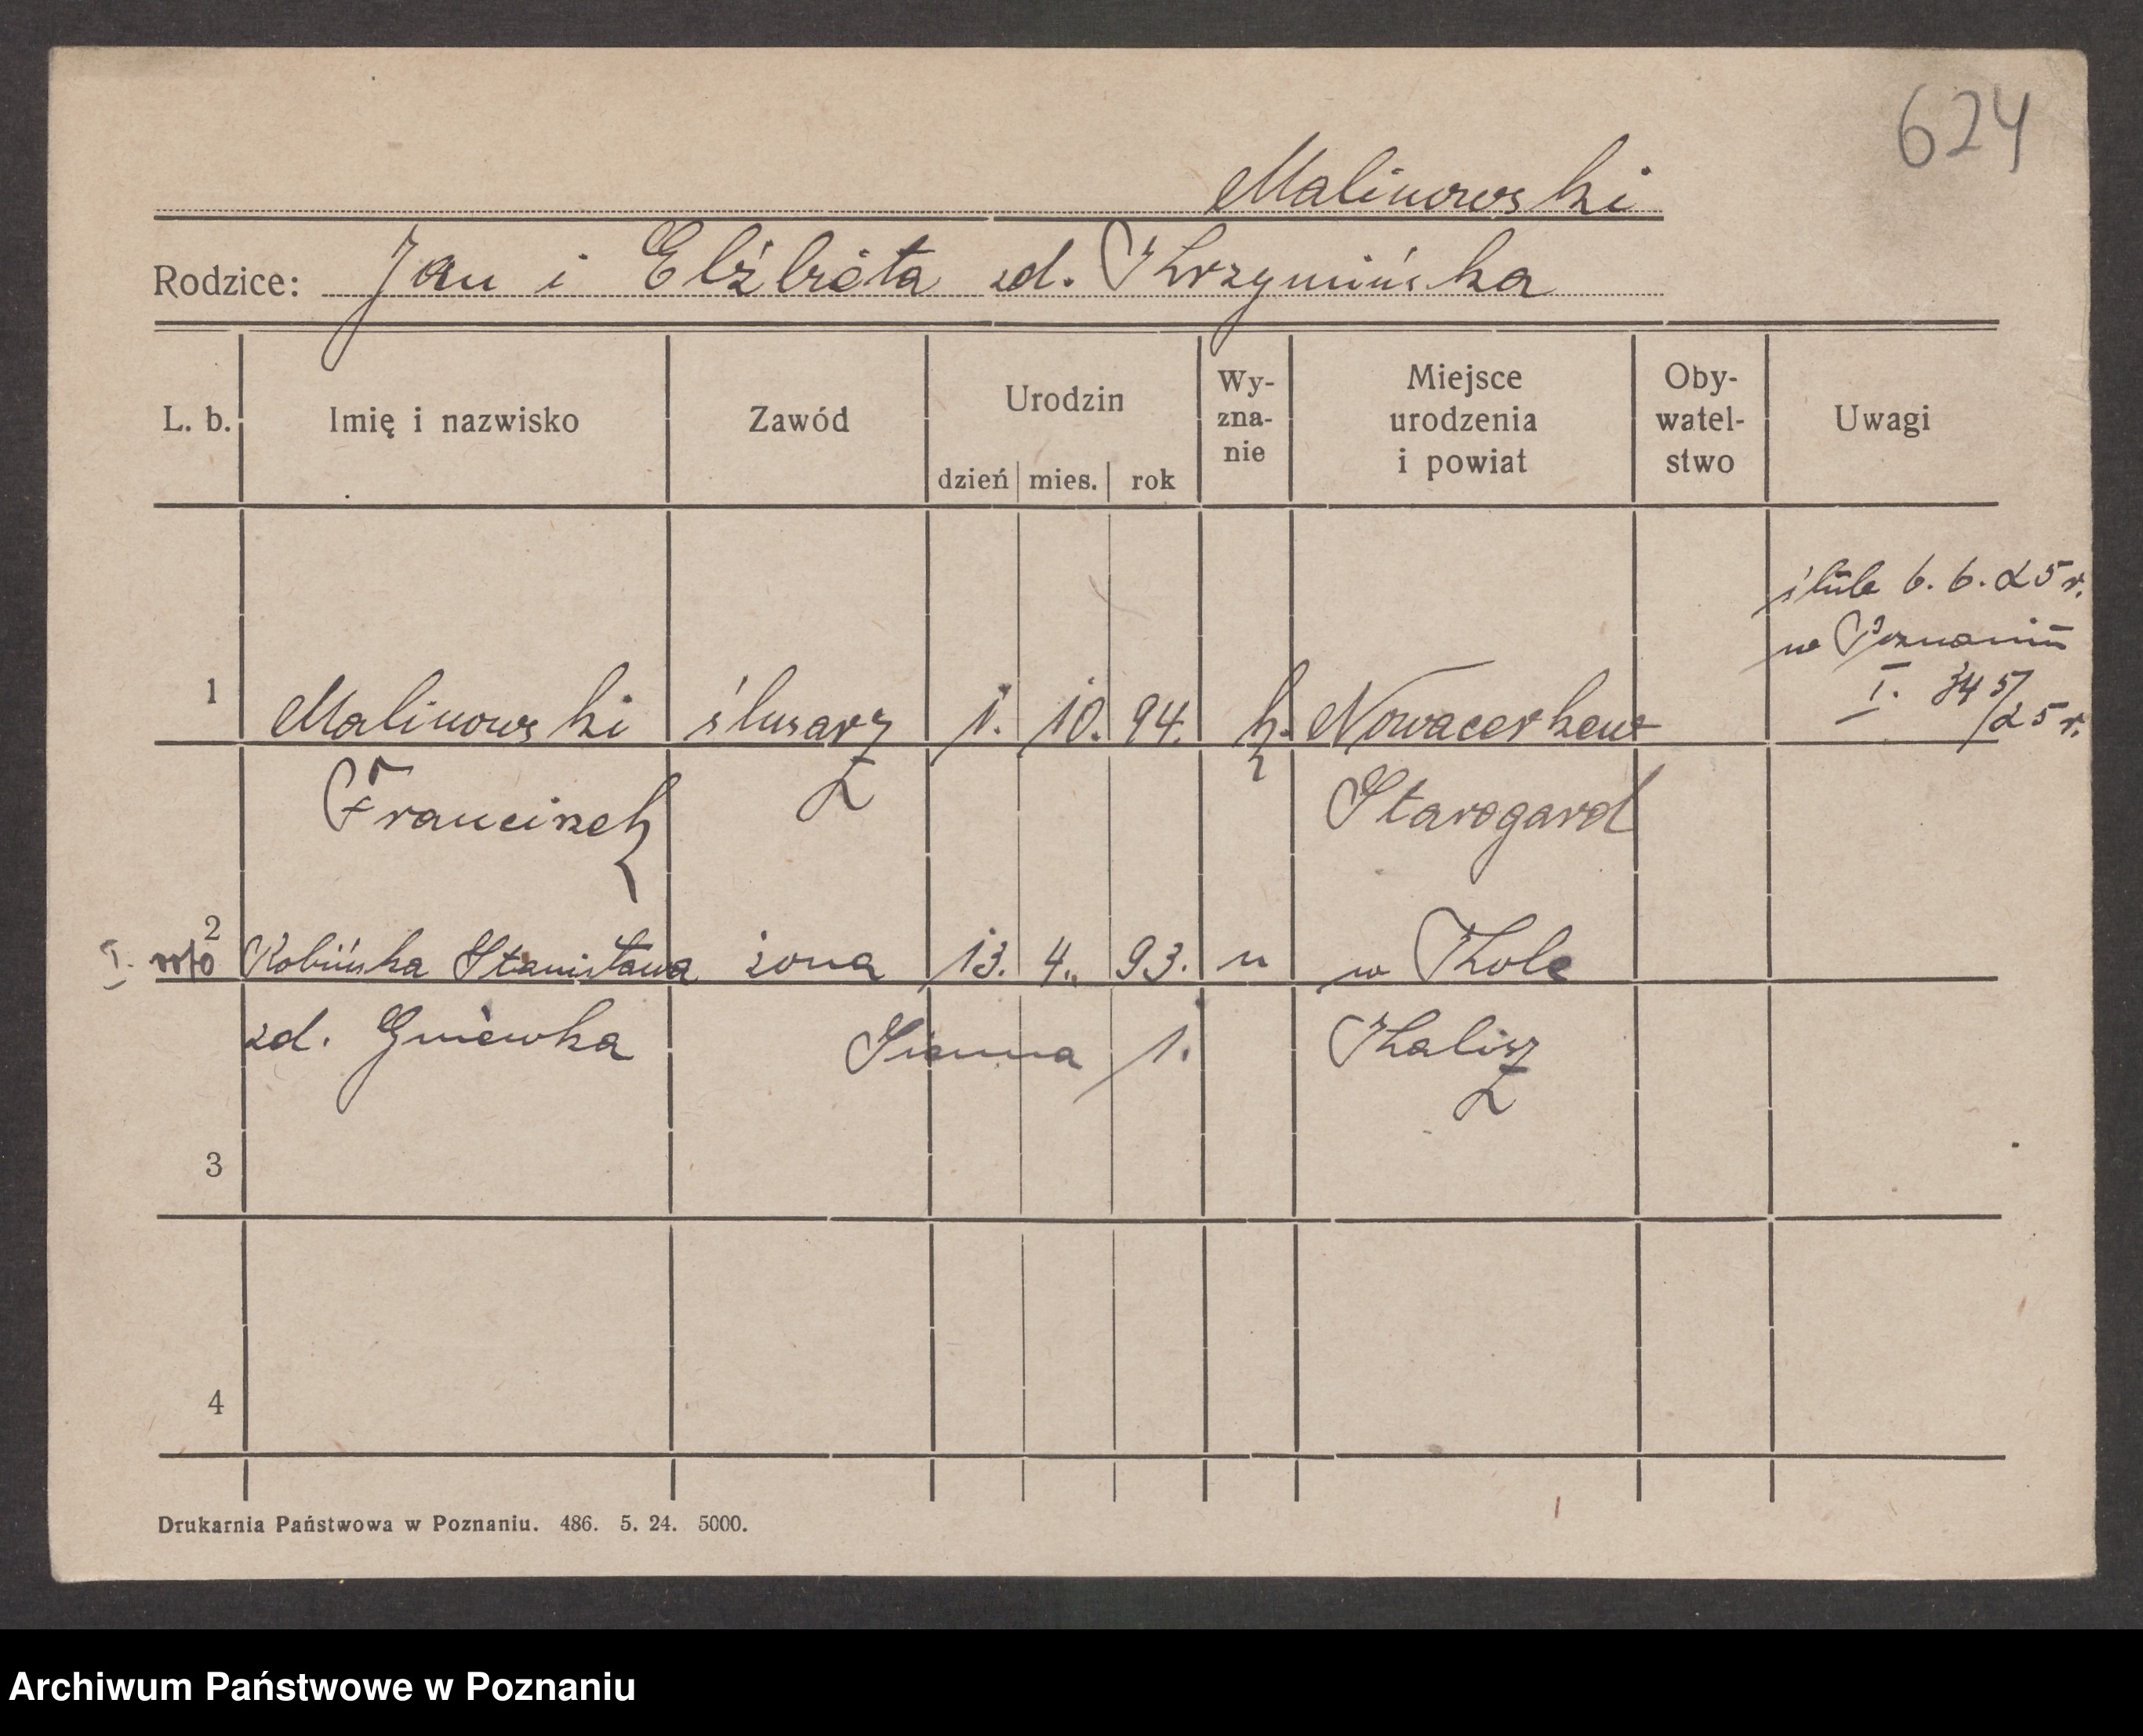 624
Malinowski
Rodzice: Jan i Elżbieta zd. Krzymińska
L. b. Imię i nazwisko Zawód Urodzin dzień mies. rok Wy-zna-nie Miejsce urodzenia i powiat Oby-watel-stwo Uwagi
ślub 6. 6. 25 r.
w Poznaniu
I. 345/25 r.
1 Malinowski ślusarz 1. 10. 94. k. Nowacerkew
Franciszek Starogard
2 I. wto Kobińska Stanisława żona 13. 4. 93. " w Kole
zd. Gniewka Sienna 1. Kalisz
3
4
Drukarnia Państwowa w Poznaniu. 486. 5. 24. 5000.
Archiwum Państwowe w Poznaniu